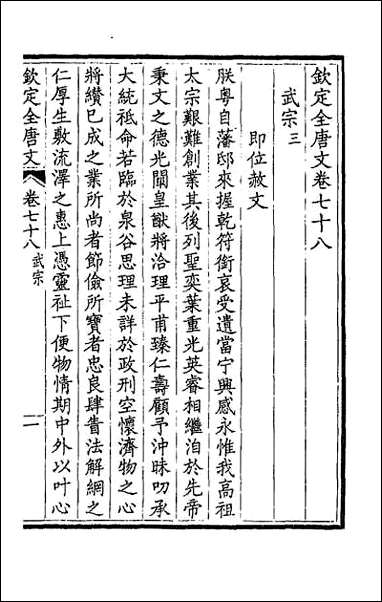 欽定全唐文卷七十八
武宗三
即位赦文
朕粤自藩邸來握乾符銜哀受遺當宁興感永惟我高祖
太宗艱難創業其後列聖奕葉重光英睿相繼洎於先帝
秉文之德光闡皇猷將洽理平甫臻仁壽顧予沖昧叨承
大統祗命若臨於泉谷思理未詳於政刑空懷濟物之心
將纘已成之業所尚者節儉所寶者忠良肆眚法解網之
仁厚生敷流澤之惠上憑靈祉下便物情期中外以叶心
欽定全唐文
卷七十八
武宗
一